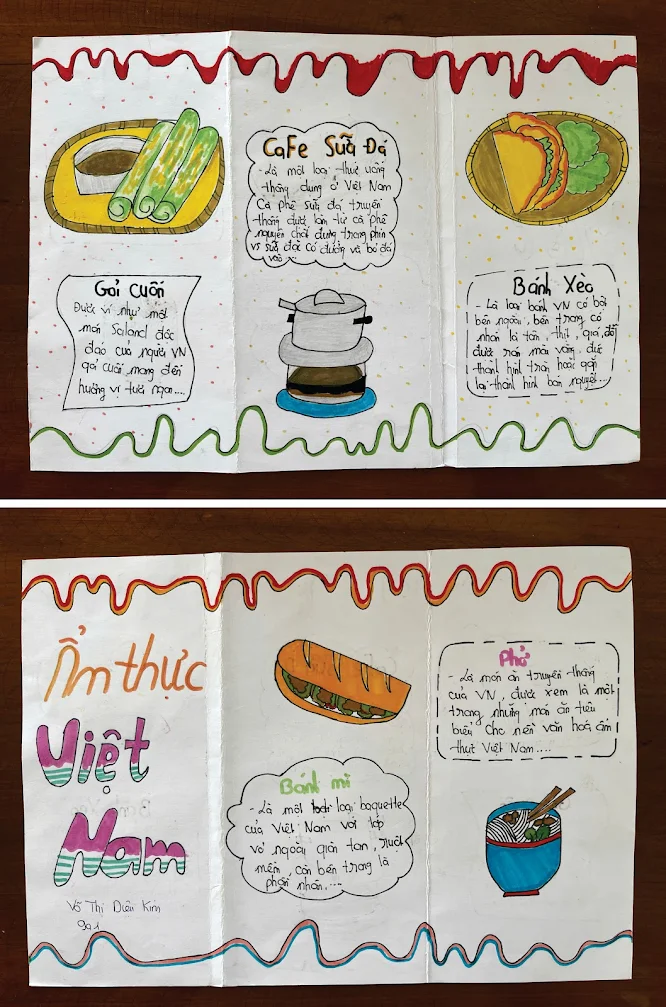 Gỏi Cuốn
Được ví như một
món Saland độc
đáo của người VN
gỏi cuốn mang đến
hương vị tươi ngon....
Cafe Sữa Đá
- Là một loại thức uống
thông dụng ở Việt Nam
Cà phê sữa đá truyền
thống được làm từ cà phê
nguyên chất đựng trong phin
vs sữa đặc có đường và bỏ đá
vào
Bánh Xèo
- Là loại bánh VN có bột
bên ngoài, bên trong có
nhân là tôm, thịt, giá, đỗ
được rán màu vàng, đúc
thành hình tròn hoặc gấp
lại thành hình bán nguyệt...
Ẩm thực
Việt
Nam
Võ Thị Diệu Kim
9a1
Bánh mì
- Là một loại baquette
của Việt Nam với lớp
vỏ ngoài giòn tan, ruột
mềm còn bên trong là
phần nhân....
Phở
- Là món ăn truyền thống
của VN, được xem là một
trong những món ăn tiêu
biểu cho nền văn hoá ẩm
thực Việt Nam....